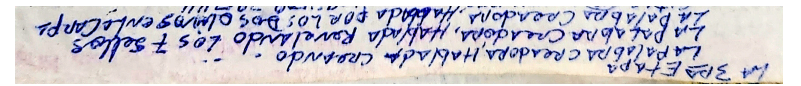 LA 3RA ETAPA
LA PALABRA CREADORA, HABLADA CREANDO
LA PALABRA CREADORA, HABLADA REVELANDO LOS 7 SELLOS
LA PALABRA CREADORA, HABLADA POR LOS DOS OLIVOS